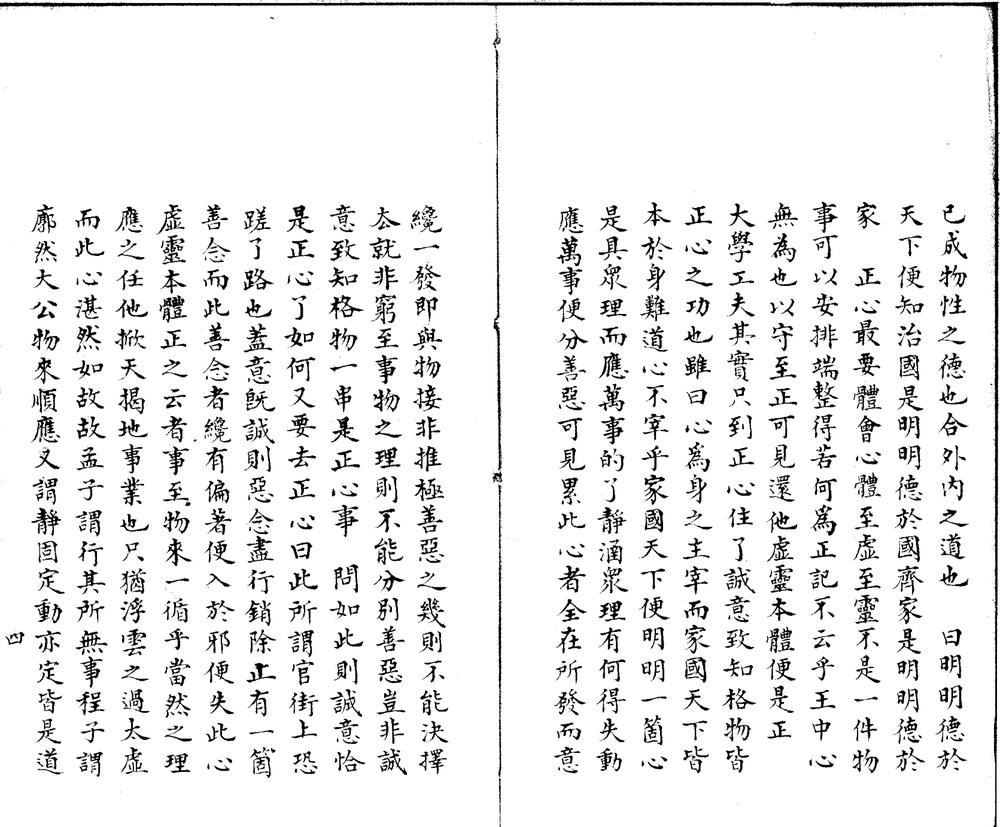 已成物性之德也合外內之道也　曰明明德於
天下便知治國是明明德於國齊家是明明德於
家　正心最要體會心體至虛至靈不是一件物
事可以安排端整得若何爲正記不云乎王中心
無為也以守至正可見還他虛靈本體便是正
大學工夫其實只到正心住了誠意致知格物皆
正心之功也雖曰心為身之主宰而家國天下皆
本於身難道心不宰乎家國天下便明明一箇心
是具衆理而應萬事的了靜涵衆理有何得失動
應萬事便分善惡可見累此心者全在所發而意
纔一發即與物接非推極善惡之幾則不能決擇
厺就非窮至事物之理則不能分別善惡豈非誠
意致知格物一串是正心事　問如此則誠意恰
是正心了如何又要去正心曰此所謂官街上恐
蹉了路也蓋意既誠則惡念盡行銷除止有一箇
善念而此善念者纔有偏著便入於邪便失此心
虛靈本體正之云者事至物來一循乎當然之理
應之任他掀天揭地事業也只猶浮雲之過太虛
而此心湛然如故故孟子謂行其所無事程子謂
廓然大公物來順應又謂靜固定動亦定皆是道
四